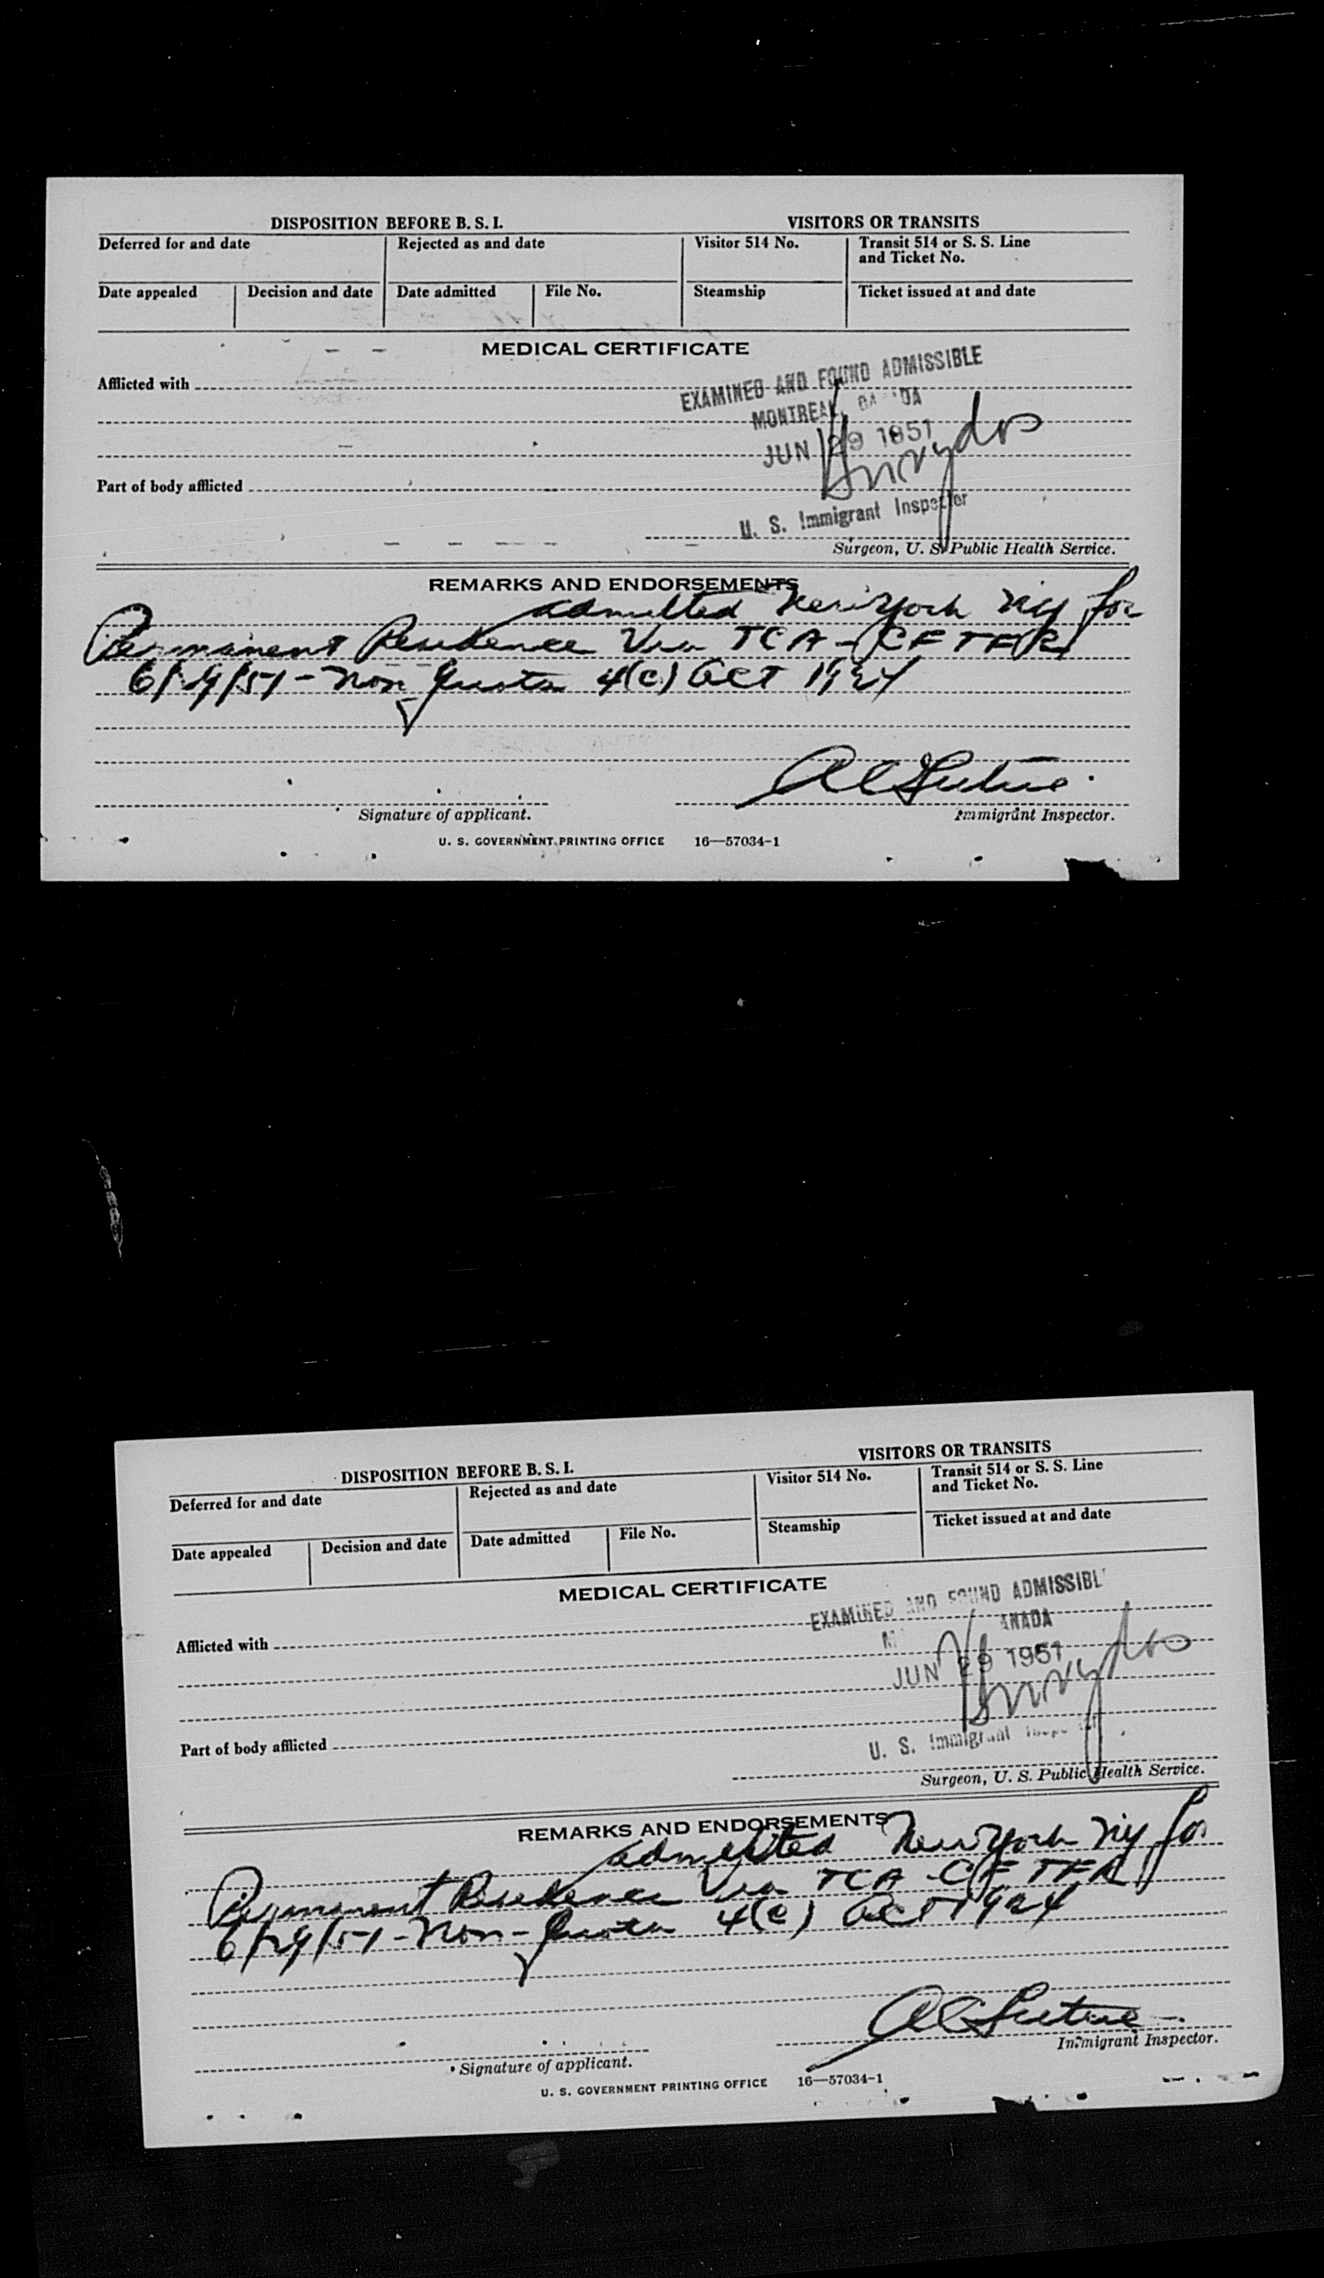 DISPOSITION BEFORE B. S. I.
VISITORS OR TRANSITS
Deferred for and date
Rejected as and date
Visitor 514 No.
Transit 514 or S. S. Line
and Ticket No.
Date appealed
Decision and date
Date admitted
File No.
Steamship
Ticket issued at and date
MEDICAL CERTIFICATE
EXAMINED AND FOUND ADMISSIBLE
Afflicted with
MONTREAL,
JUN 29 1951
Part of body afflicted
U. S. Immigrant Inspector
Surgeon, U. S. Public Health Service.
REMARKS AND ENDORSEMENTS
admitted New York NY for
Permanent Residence Via TCA - CF TFR
6/29/51 - Non Quota 4(c) Act 1924
Signature of applicant.
Immigrant Inspector.
U. S. GOVERNMENT PRINTING OFFICE 16—57034-1
DISPOSITION BEFORE B. S. I.
VISITORS OR TRANSITS
Deferred for and date
Rejected as and date
Visitor 514 No.
Transit 514 or S. S. Line
and Ticket No.
Date appealed
Decision and date
Date admitted
File No.
Steamship
Ticket issued at and date
MEDICAL CERTIFICATE
EXAMINED AND FOUND ADMISSIBL
Afflicted with
ANADA
JUN 29 1951
Part of body afflicted
U. S. Immigrant
Surgeon, U. S. Public Health Service.
REMARKS AND ENDORSEMENTS
admitted New York NY for
Permanent Residence Via TCA - CF TFR
6/29/51 - Non - Quota 4(c) Act 1924
Signature of applicant.
Immigrant Inspector.
U. S. GOVERNMENT PRINTING OFFICE 16—57034-1